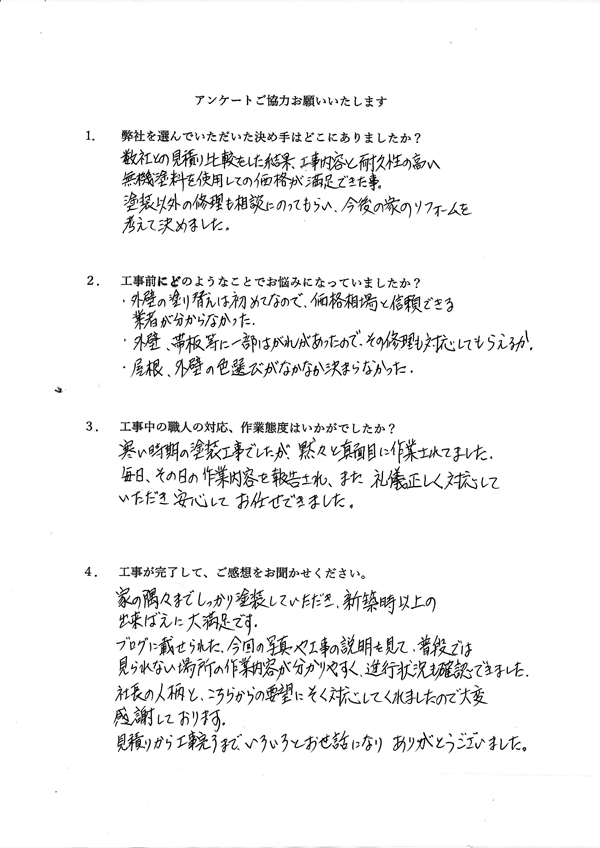 アンケートご協力お願いいたします
1. 弊社を選んでいただいた決め手はどこにありましたか?
数社との見積り比較をした結果、工事内容と耐久性の高い
無機塗料を使用しての価格が満足できた事。
塗装以外の修理も相談にのってもらい、今後の家のリフォームを
考えて決めました。
2. 工事前にどのようなことでお悩みになっていましたか?
・外壁の塗り替えは初めてなので、価格相場と信頼できる
業者が分からなかった.
・外壁、帯板等に一部はがれがあったので、その修理も対応してもらえるか.
・屋根、外壁の色選びがなかなか決まらなかった.
3. 工事中の職人の対応、作業態度はいかがでしたか?
寒い時期の塗装工事でしたが、黙々と真面目に作業されてました.
毎日、その日の作業内容を報告され、また 礼儀正しく対応して
いただき 安心して お任せできました。
4. 工事が完了して、ご感想をお聞かせください。
家の隅々までしっかり塗装していただき、新築時以上の
出来ばえに大満足です。
ブログに載せられた、今回の写真や工事の説明を見て、普段では
見られない場所の作業内容が分かりやすく、進行状況も確認できました.
社長の人柄と、こちらからの要望にそく対応してくれましたので大変
感謝しております。
見積りから工事完了まで、いろいろとお世話になり ありがとうございました。